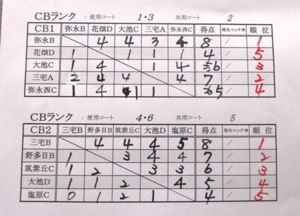 CBランク 使用コート 1・3 共用コート 2
CB1 弥永B 花畑D 大池C 三宅A 弥永西C 得点 得失マッチ率 順位
弥永B 4 4 3 4 8 / 1
花畑D 1 1 1 1 4 / 5
大池C 1 4 1 4 / 3
三宅A 2 4 4 4 7 / 2
弥永西C 1 4 1 / 4
CBランク 使用コート 4・6 共用コート 5
CB2 三宅B 野多目B 筑紫丘C 大池D 塩原C 得点 得失マッチ率 順位
三宅B 4 4 4 5 8 / 1
野多目B 1 3 4 4 7 / 2
筑紫丘C 1 2 3 3 6 / 3
大池D 1 1 2 4 5 / 4
塩原C 0 1 2 1 4 / 5